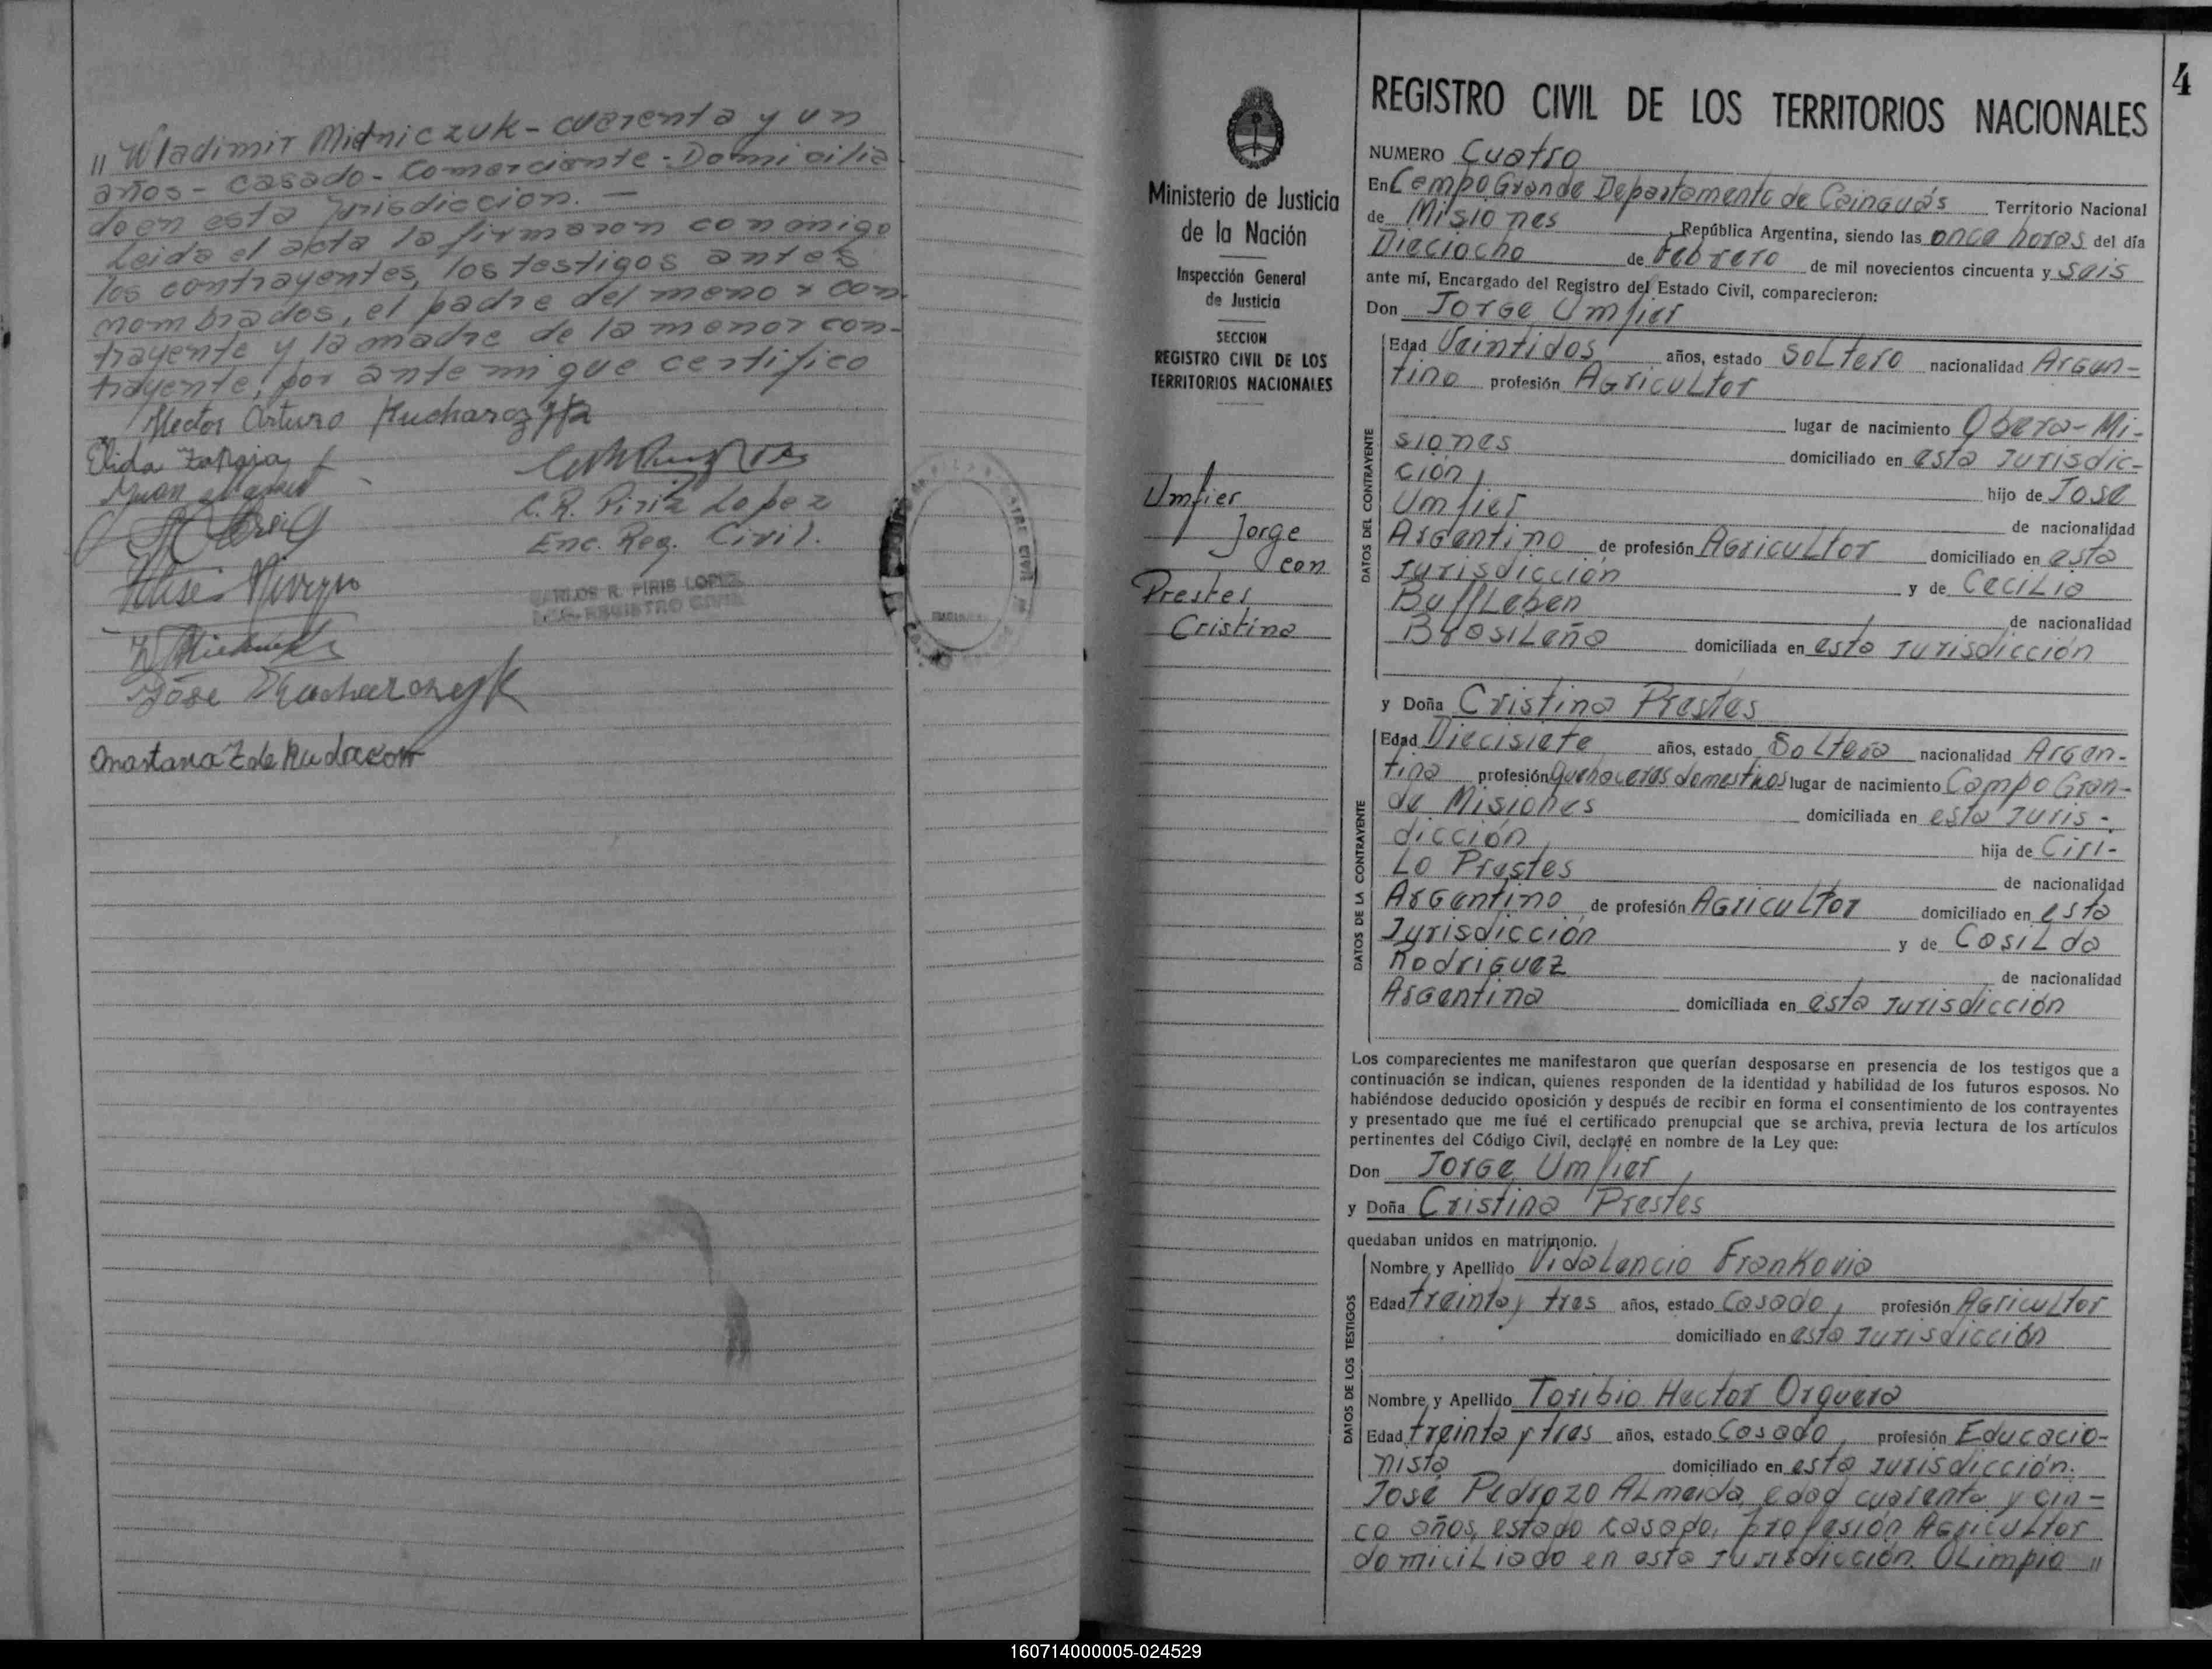 " Wladimir Midniczuk - cuarenta y un
años - casado - Comerciante - Domicilia
do en esta Jurisdiccion. —
Leida el acta la firmaron conmigo
los contrayentes, los testigos antes
nombrados, el padre del menor con-
trayente y la madre de la menor con-
trayente, por ante mi que certifico
Hector Arturo Kucharczyk
Elida
Juan
C. R. Piris Lopez
Enc. Reg. Civil.
CARLOS R. PIRIS LOPEZ
ENC. REGISTRO CIVIL
José Kucharczyk
Anastacia Z de Rudacow
4
Ministerio de Justicia
de la Nación
Inspección General
de Justicia
SECCION
REGISTRO CIVIL DE LOS
TERRITORIOS NACIONALES
Umfier
Jorge
con
Prestes
Cristina
REGISTRO CIVIL DE LOS TERRITORIOS NACIONALES
NUMERO Cuatro
En Campo Grande Departamento de Cainguás Territorio Nacional
de Misiones República Argentina, siendo las once horas del día
Dieciocho de Febrero de mil novecientos cincuenta y seis
ante mí, Encargado del Registro del Estado Civil, comparecieron:
Don Jorge Umfier
DATOS DEL CONTRAYENTE
Edad Veintidos años, estado Soltero nacionalidad Argen-
tino profesión Agricultor
lugar de nacimiento Obera-Mi-
siones domiciliado en esta Jurisdic-
ción, hijo de José
Umfier de nacionalidad
Argentino de profesión Agricultor domiciliado en esta
Jurisdicción y de Cecilia
Buffleben de nacionalidad
Brasileña domiciliada en esta Jurisdicción
y Doña Cristina Prestes
DATOS DE LA CONTRAYENTE
Edad Diecisiete años, estado Soltera nacionalidad Argen-
tina profesión Quehaceres domesticos lugar de nacimiento Campo Gran-
de Misiones domiciliada en esta Juris-
dicción, hija de Ciri-
lo Prestes de nacionalidad
Argentino de profesión Agricultor domiciliado en esta
Jurisdicción y de Casilda
Rodriguez de nacionalidad
Argentina domiciliada en esta Jurisdicción
Los comparecientes me manifestaron que querían desposarse en presencia de los testigos que a
continuación se indican, quienes responden de la identidad y habilidad de los futuros esposos. No
habiéndose deducido oposición y después de recibir en forma el consentimiento de los contrayentes
y presentado que me fué el certificado prenupcial que se archiva, previa lectura de los artículos
pertinentes del Código Civil, declaré en nombre de la Ley que:
Don Jorge Umfier
y Doña Cristina Prestes
quedaban unidos en matrimonio.
DATOS DE LOS TESTIGOS
Nombre y Apellido Vidalencio Frankovia
Edad treinta y tres años, estado Casado, profesión Agricultor
domiciliado en esta Jurisdicción
Nombre y Apellido Toribio Hector Orquera
Edad treinta y tres años, estado Casado, profesión Educacio-
nista domiciliado en esta Jurisdicción.
José Pedrozo Almeida, edad cuarenta y cin-
co años, estado casado, profesión Agricultor
domiciliado en esta Jurisdicción. Olimpio "
160714000005-024529